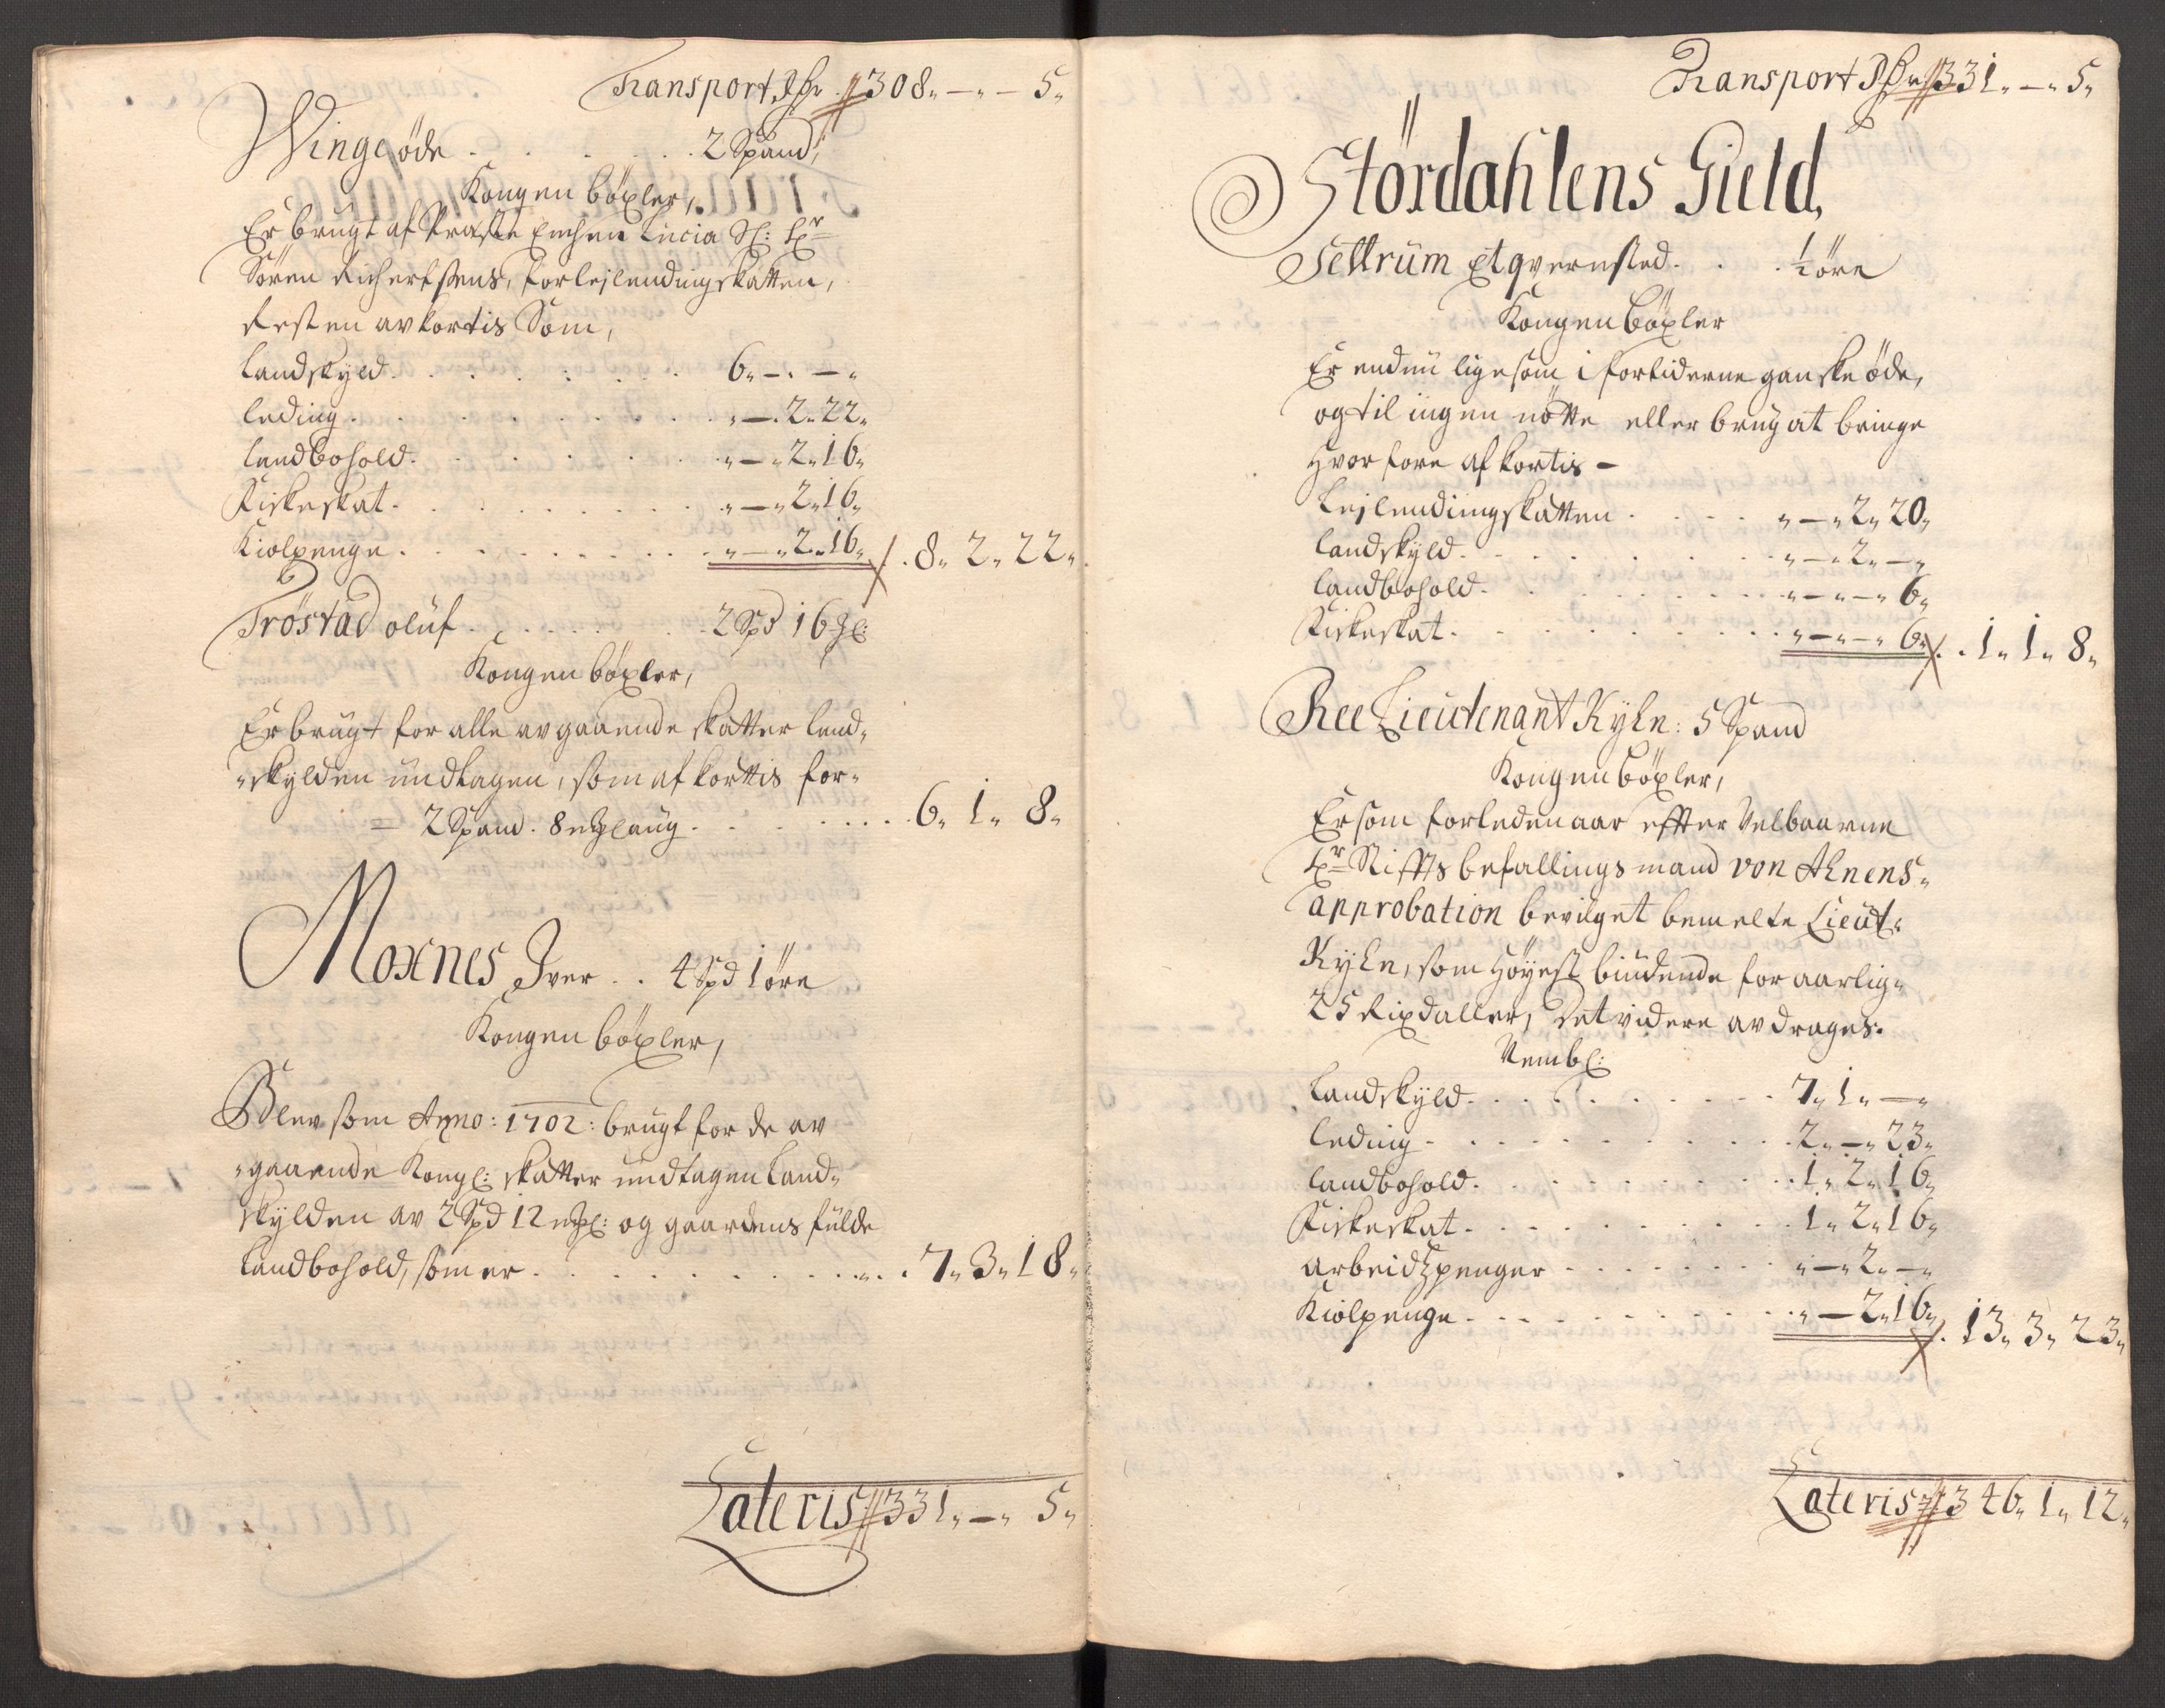 Transport 308 " — " — 5 "
Winge öde . . . . . . 2 Spand,
Kongen böxler,
Er brugt af Præste Enchen Lucia Sl: Hr
Sören Richertsens, for lejlendingskatten,
Resten avkortis Som,
Landskyld . . . . . . . 6 " — " — "
leding . . . . . . . . " — " 2 " 22 "
Landbohold . . . . . . . " — " 2 " 16 "
Fiskeskat . . . . . . . " — " 2 " 16 "
Kiolpenge . . . . . . . " — " 2 " 16 " . 8 " 2 " 22 "
Tröstad oluf . . . . . . 2 Spd 16 
Kongen böxler,
Er brugt for alle avgaaende skatter land-
"skylden undtagen, som af kortis for-
= 2 Spand . 8 laug . . . . . . . 6 " 1 " 8 "
Moxnes Iver . . 4 Spd 1 öre
Kongen böxler,
Blev som Anno: 1702: brugt for de av
"gaaende Kongl: skatter undtagen Land-
skylden av 2 Spd 12 og gaardens fulde
Landbohold, som er . . . . . . . . 7 " 3 " 18 "
Lateris 331 " — " 5 "
Transport 331 " — " 5 "
Stördahlens Gield,
Selkrüm et qvernsted . . . ½ öre
Kongen böxler
Er endnu ligesom i fortiderne ganske öde,
og til ingen nötte eller brug at bringe
Hvorfore afkortis —
Lejlendingskatten . . . . " — " 2 " 20 "
Landskyld . . . . . . . " — " 2 " — "
Landbohold . . . . . . . " — " — " 6 "
Fiskeskat . . . . . . . " — " — " 6 " . 1 " 1 " 8 "
Ree Lieutenant Kyhn: 5 Spand
Kongen böxler,
Er som forleden aar effter Velbaarne
Hr Stiffts befallings mand von Ahnens "
approbation bevilget bemelte Lieut:
Kyhn, som Höyest biudende for aarlig "
25 Rixdaller, Det videre avdrages.
Nembl:
Landskyld . . . . . . . . 7 " 1 " — "
leding . . . . . . . . . 2 " — " 23 "
Landbohold . . . . . . . . 1 " 2 " 16 "
Fiskeskat . . . . . . . . 1 " 2 " 16 "
arbeidspenger . . . . . . " — " 2 " — "
Kiolpenge . . . . . . . . " — " 2 " 16 " . 13 " 3 " 23 "
Lateris 346 " 1 " 12 "